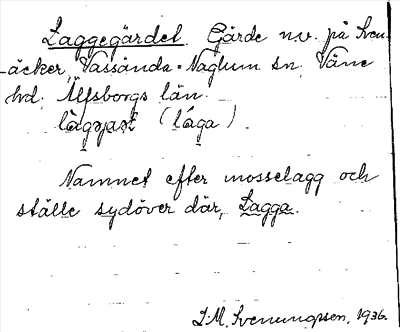 Laggegärdet. Gärde nv. på Sven-
åcker, Vassända-Naglum sn, Väne
hd, Älfsborgs län.
(låga).
Namnet efter mosselagg och
ställe sydöver där, Lagga.
I.M. Svenungsson, 1936.